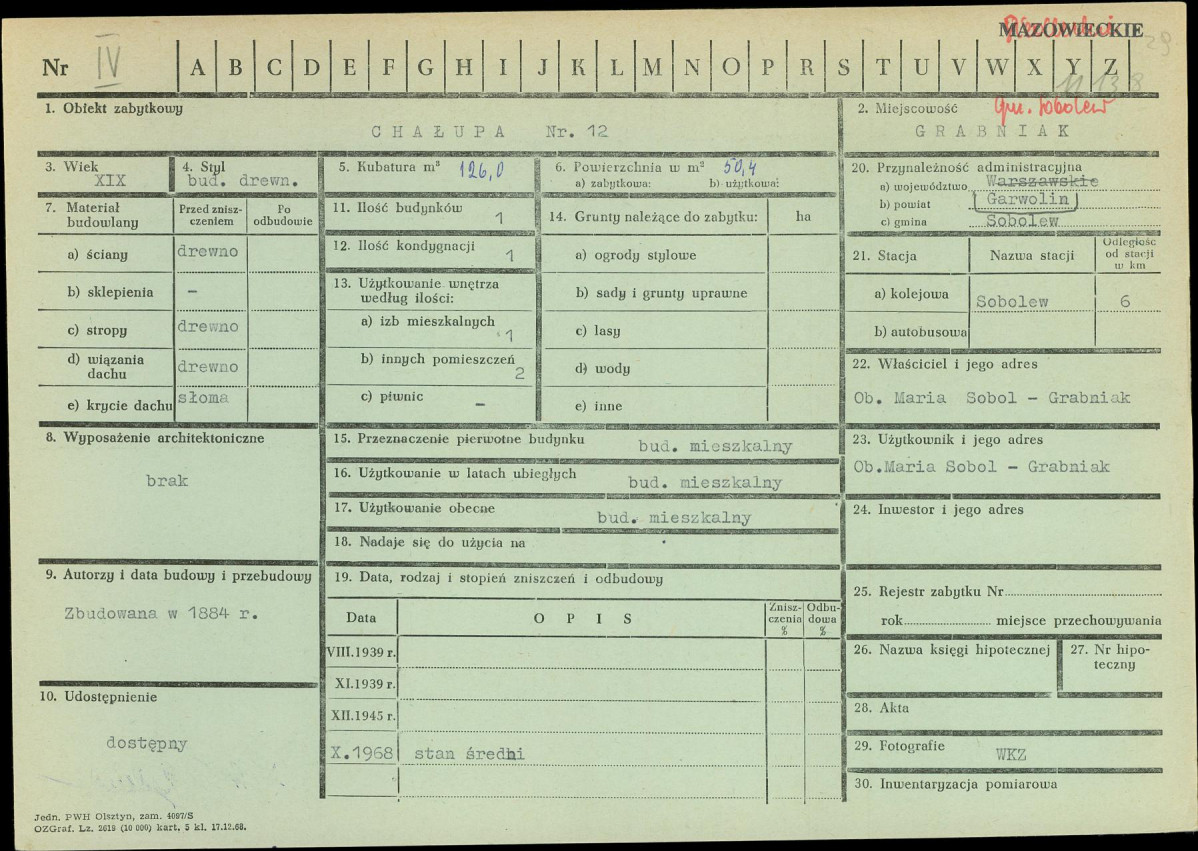 MAZOWIECKIE
29
Nr IV A B C D E F G H I J K L M N O P R S T U V W X Y Z
1. Obiekt zabytkowy
CHAŁUPA Nr. 12
2. Miejscowość gm. Sobolew
GRABNIAK
3. Wiek
XIX
4. Styl
bud. drewn.
5. Kubatura m³ 126,0
6. Powierzchnia w m² 50,4
a) zabytkowa: b) użytkowa:
20. Przynależność administracyjna
a) województwo Warszawskie
b) powiat Garwolin
c) gmina Sobolew
7. Materiał budowlany
Przed znisz-
czeniem
Po
odbudowie
a) ściany drewno
b) sklepienia –
c) stropy drewno
d) wiązania
dachu drewno
e) krycie dachu słoma
11. Ilość budynków 1
12. Ilość kondygnacji 1
13. Użytkowanie wnętrza
według ilości:
a) izb mieszkalnych 1
b) innych pomieszczeń 2
c) piwnic –
14. Grunty należące do zabytku: ha
a) ogrody stylowe
b) sady i grunty uprawne
c) lasy
d) wody
e) inne
21. Stacja Nazwa stacji
Odległość
od stacji
w km
a) kolejowa Sobolew 6
b) autobusowa
22. Właściciel i jego adres
Ob. Maria Sobol – Grabniak
8. Wyposażenie architektoniczne
brak
15. Przeznaczenie pierwotne budynku bud. mieszkalny
16. Użytkowanie w latach ubiegłych bud. mieszkalny
17. Użytkowanie obecne bud. mieszkalny
18. Nadaje się do użycia na
23. Użytkownik i jego adres
Ob.Maria Sobol – Grabniak
24. Inwestor i jego adres
9. Autorzy i data budowy i przebudowy
Zbudowana w 1884 r.
19. Data, rodzaj i stopień zniszczeń i odbudowy
Data OPIS
Znisz-
czenia
%
Odbu-
dowa
%
VIII.1939 r.
XI.1939 r.
XII.1945 r.
X.1968 stan średni
25. Rejestr zabytku Nr
rok miejsce przechowywania
26. Nazwa księgi hipotecznej
27. Nr hipo-
teczny
10. Udostępnienie
dostępny
28. Akta
29. Fotografie
WKZ
30. Inwentaryzacja pomiarowa
Jedn. PWH Olsztyn, zam. 4097/S
OZGraf. Lz. 2618 (10 000) kart. 5 kl. 17.12.68.